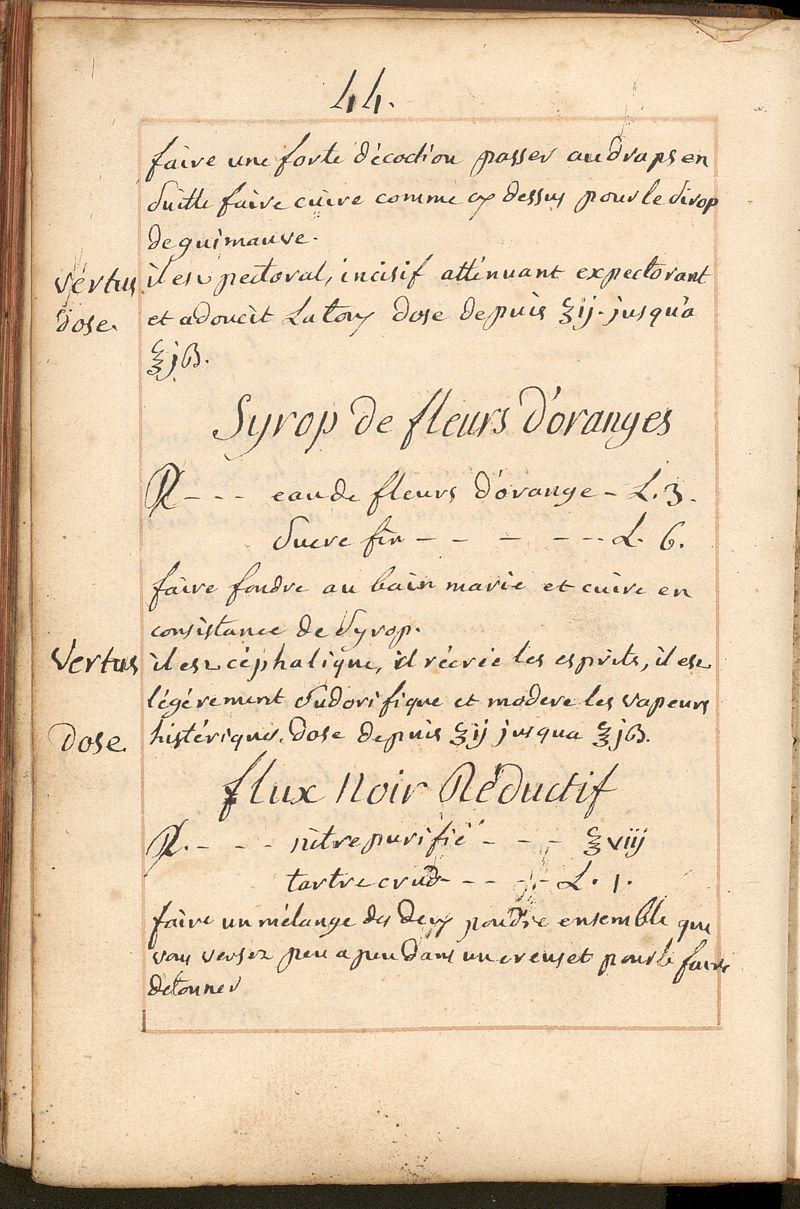 44.
faire une forte décoction passer au draps en
suitte faire cuire comme cy dessus pour le sirop
de guimauve.
vértus il est pectoral, incisif atténuant expectorant
dose. et adoucit la toux dose depuis ℥ij. jusqu'a
℥jß.
Syrop de fleurs d'oranges
℞ - - - eau de fleurs d'orange - L. 3.
sucre fin - - - - - - L. 6.
faire fondre au bain marie et cuire en
consistance de syrop.
Vertus il est céphalique, il récrée les esprits, il est
légérement sudorifique et modere les vapeurs
dose histériques. dose depuis ℥ij jusqua ℥jß.
flux noir Réductif
℞. - - - nitre purifié - - - ℥viij
tartre crud - - - - L. 1.
faire un mélange des deux poudre ensemble que
vous versez peu a peu dans un creuset pour le faire
detonner